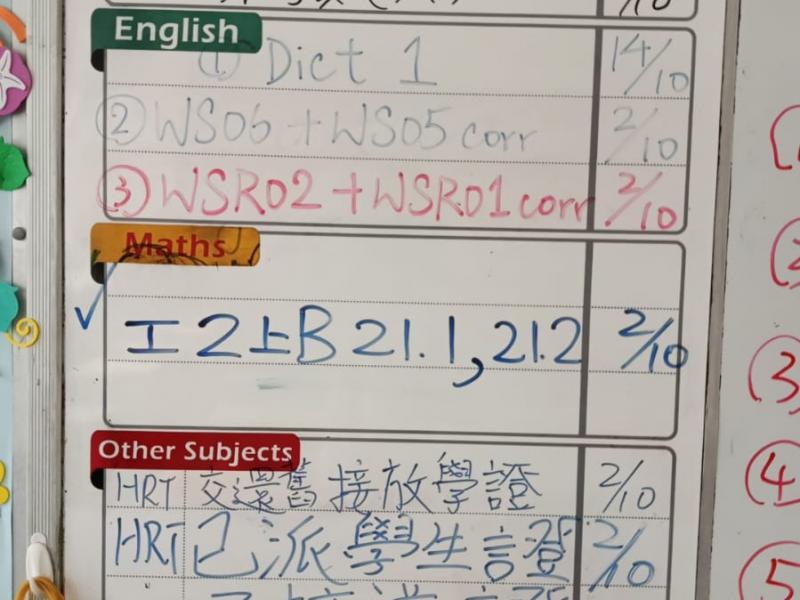 /10
English
① Dict 1 14/10
② WS06 + WS05 corr 2/10
③ WSR02 + WSR01 corr 2/10
Maths
工 2上B 21.1, 21.2 2/10
Other Subjects
HRT 交還舊接放學證 2/10
HRT 已派學生證 2/10